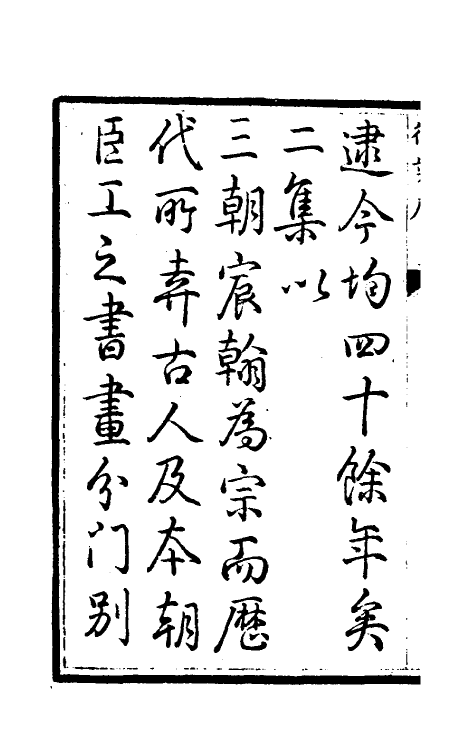 逮今均四十餘年矣
二集以
三朝宸翰為宗而歷
代所弆古人及本朝
臣工之書畫分门别